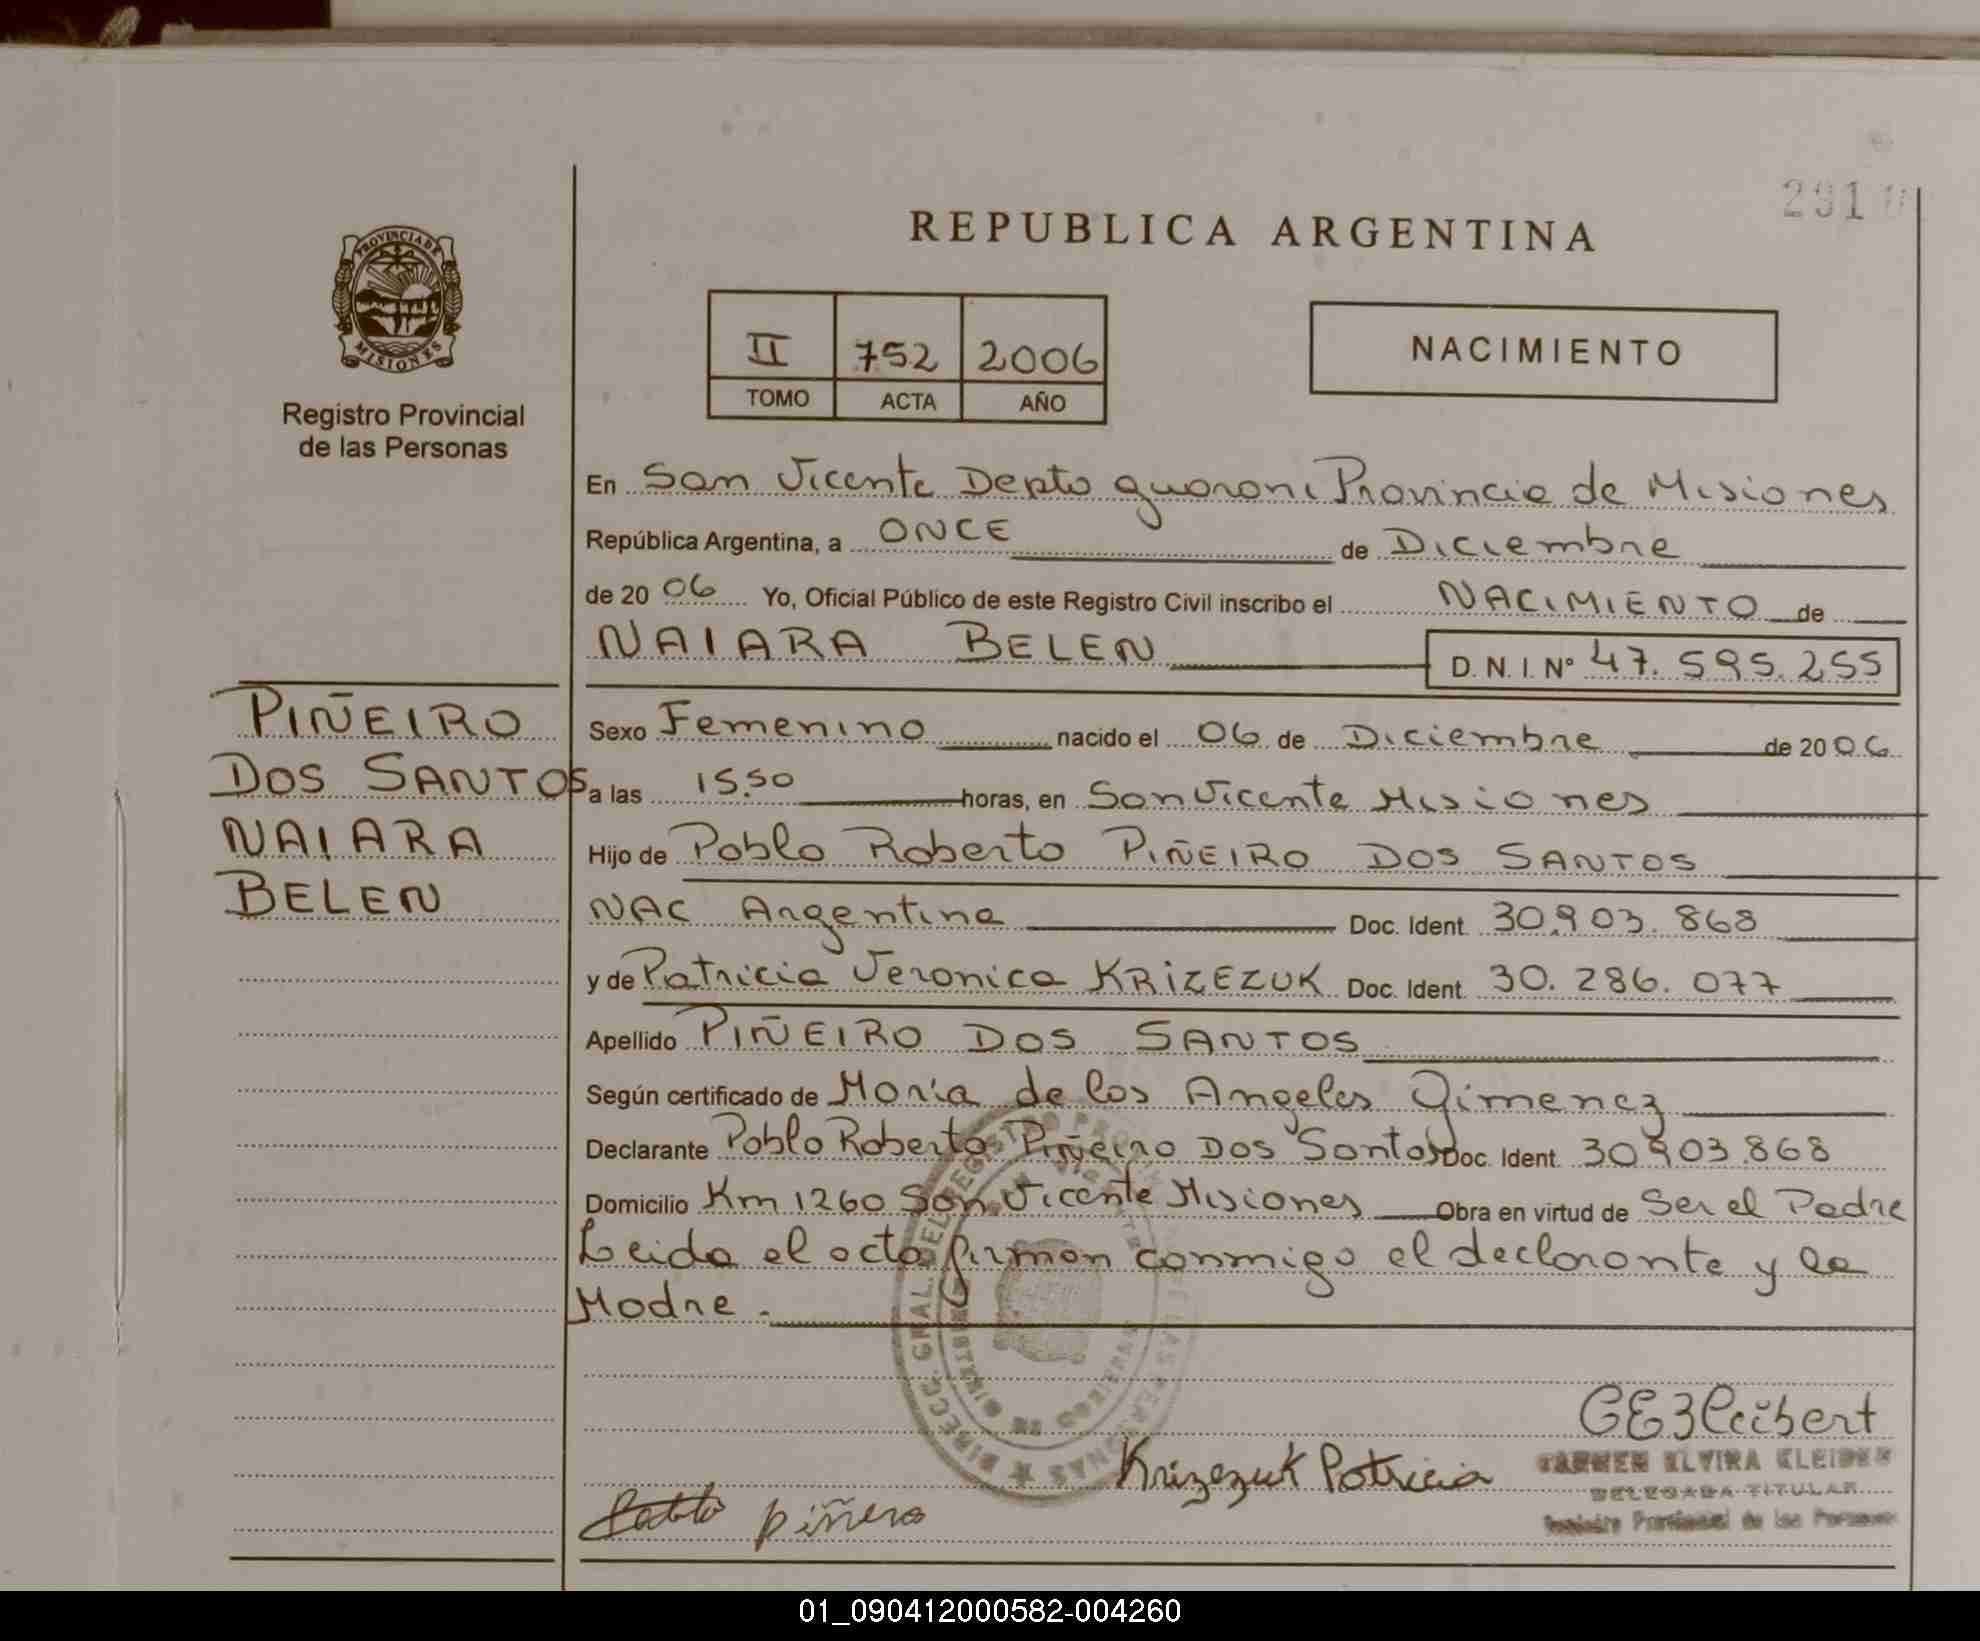 2910
REPUBLICA ARGENTINA
PROVINCIA DE
MISIONES
Registro Provincial
de las Personas
II 752 2006
TOMO ACTA AÑO
NACIMIENTO
En San Vicente Depto guarani Provincia de Misiones
República Argentina, a ONCE de Diciembre
de 2006 Yo, Oficial Público de este Registro Civil inscribo el NACIMIENTO de
NAIARA BELEN D. N. I. Nº 47.595.255
PIÑEIRO
DOS SANTOS
NAIARA
BELEN
Sexo Femenino nacido el 06 de Diciembre de 2006
a las 15.50 horas, en San Vicente Misiones
Hijo de Pablo Roberto PIÑEIRO DOS SANTOS
NAC Argentina Doc. Ident. 30.903.868
y de Patricia Veronica KRIZEZUK Doc. Ident. 30.286.077
Apellido PIÑEIRO DOS SANTOS
Según certificado de Maria de los Angeles Gimenez
Declarante Pablo Roberto Piñeiro Dos Santos Doc. Ident. 30903.868
Domicilio Km 1260 San Vicente Misiones Obra en virtud de Ser el Padre
Leida el acta firman conmigo el declarante y la
Madre.
DIRECC. GRAL. DEL REGISTRO PROV. DE LAS PERSONAS
GEZleibert
Krizezuk Patricia
CARMEN ELVIRA KLEIBER
DELEGADA TITULAR
Registro Provincial de las Personas
Pablo piñero
01_090412000582-004260